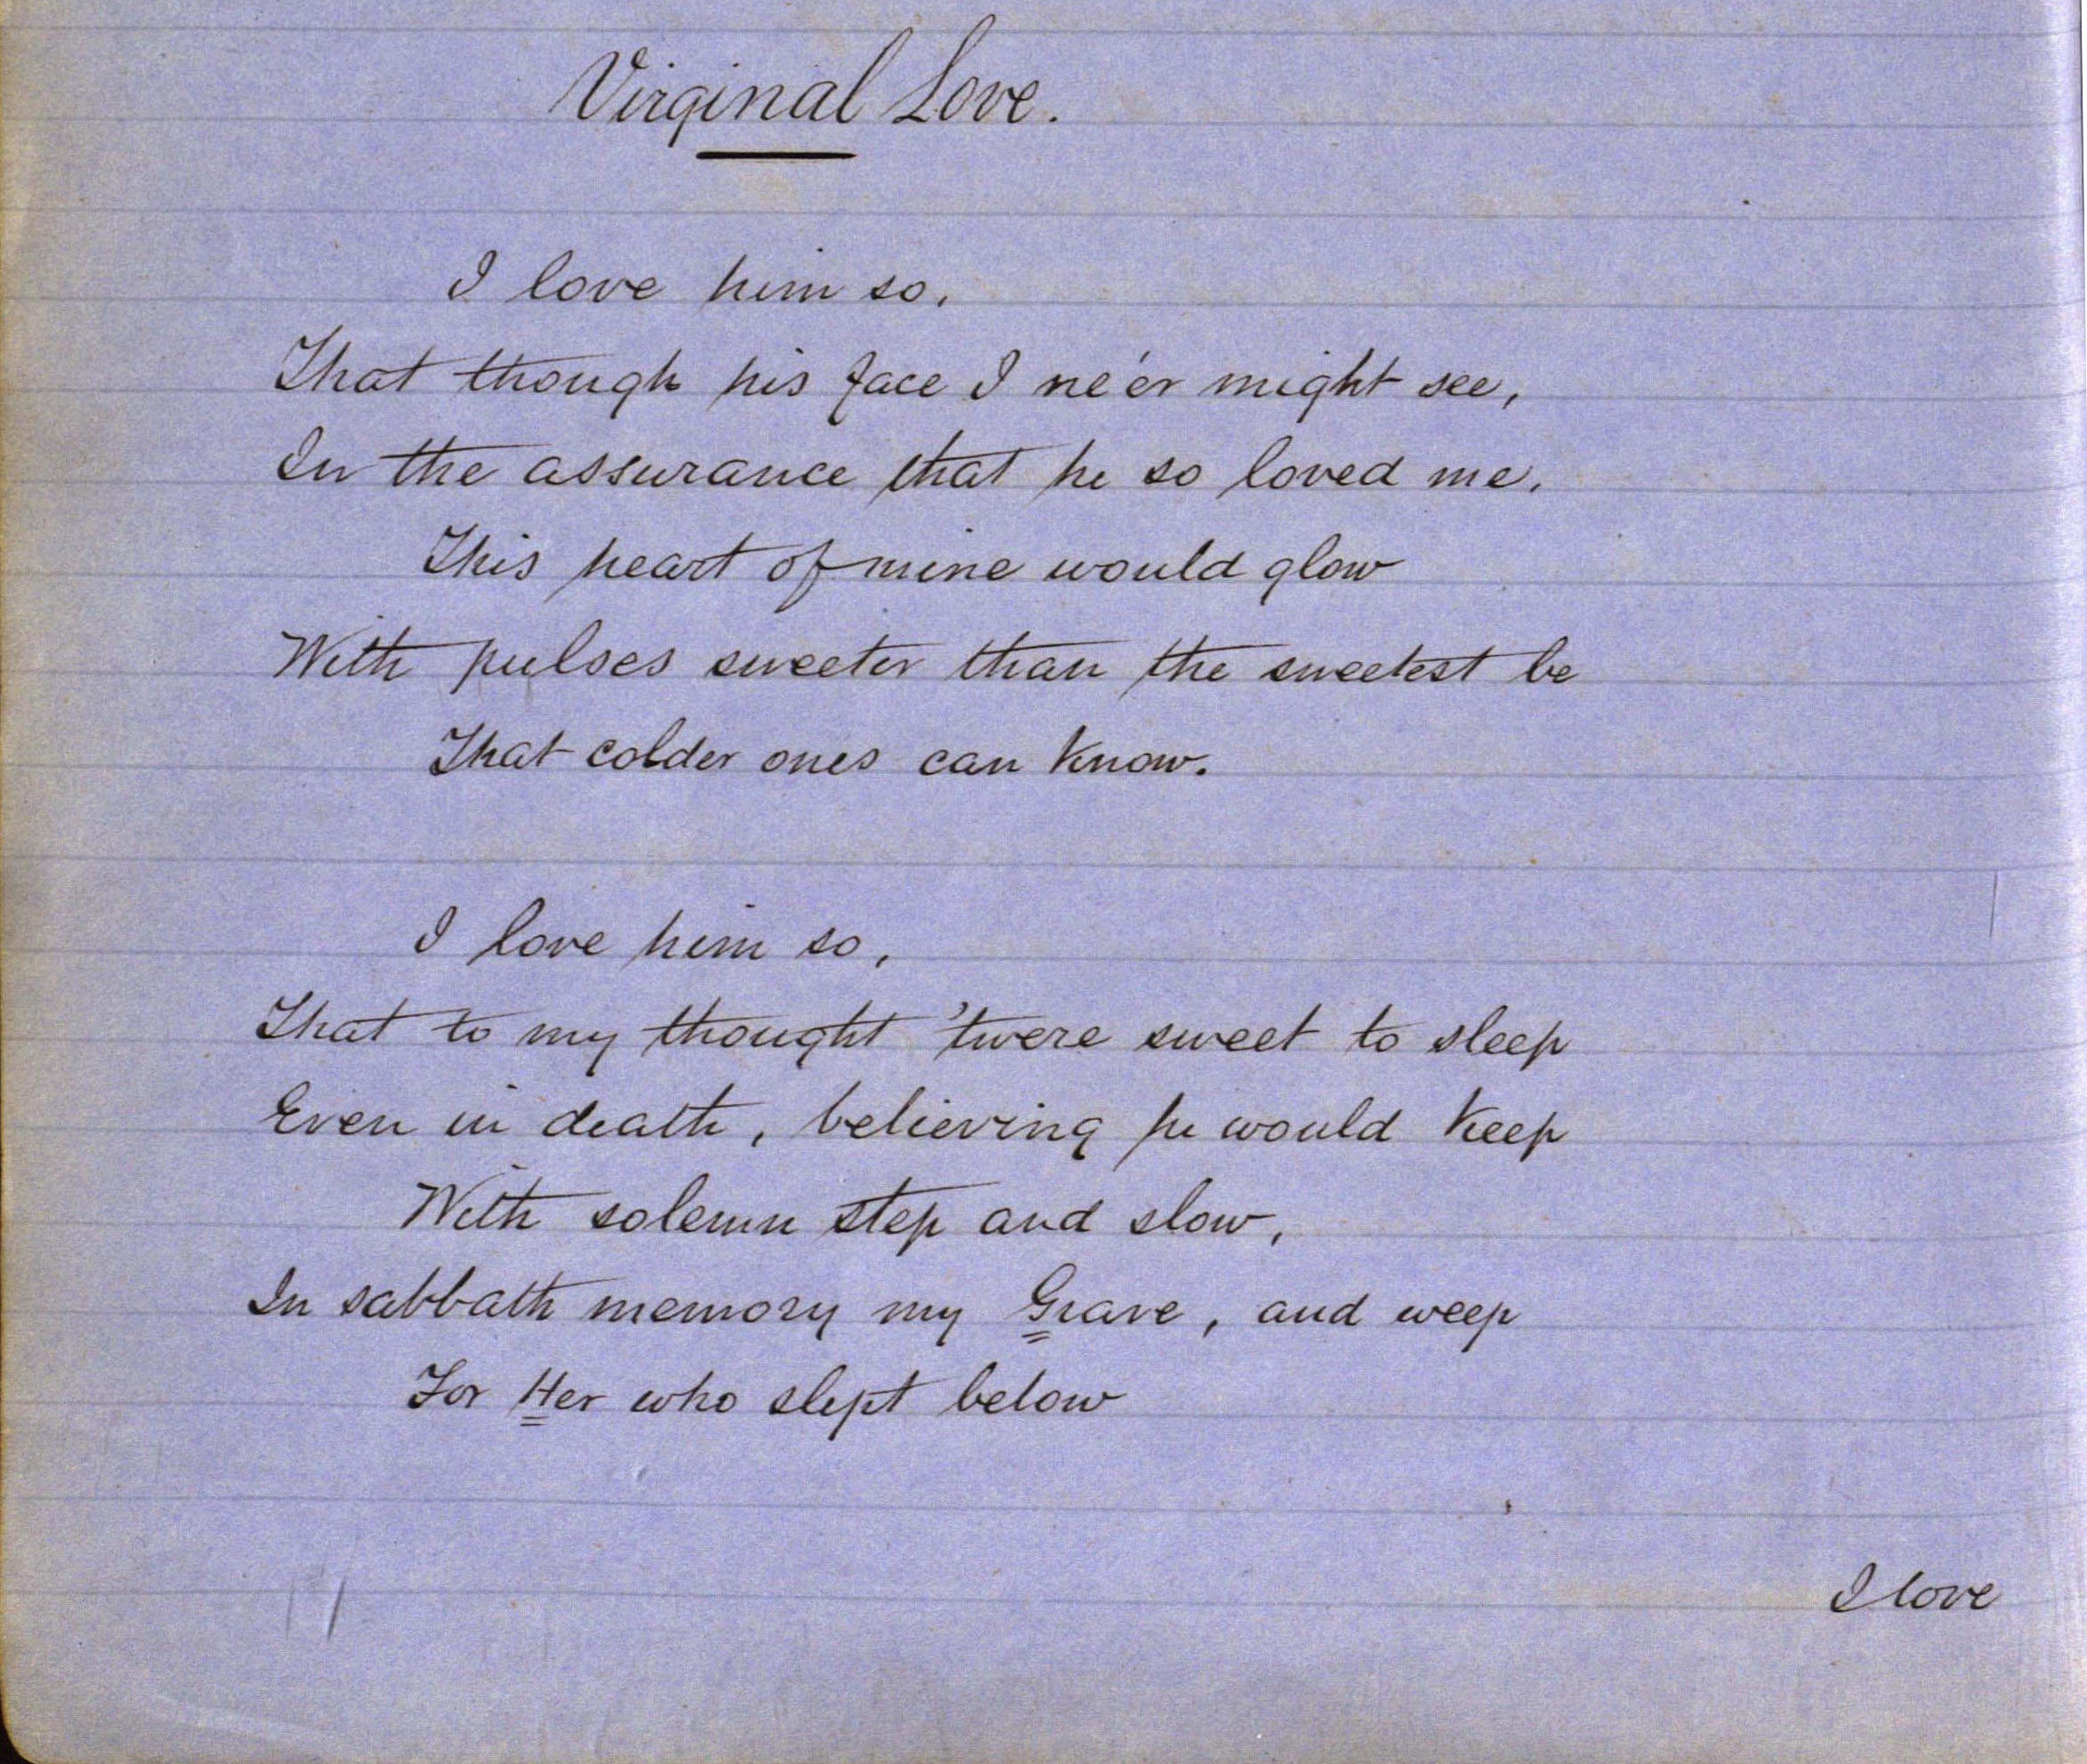 Virginal Love.
I love him so,
That though his face I ne'er might see,
In the assurance that he so loved me,
This heart of mine would glow
With pulses sweeter than the sweetest be
That colder ones can know.
I love him so,
That to my thought 'twere sweet to sleep
Even in death, believing he would keep
With solemn step and slow,
In sabbath memory my Grave, and weep
For Her who slept below
I love